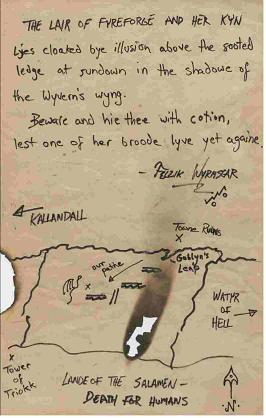 THE LAIR OF FYREFORGE AND HER KYN
Lyes cloaked bye illusion above the sooted
ledge at sundown in the shadowe of
the Wyvern's wyng.
Beware and hie thee with cotion,
lest one of her broode lyve yet againe.
- Fellik Wyrassar
KALLANDALL
Towne Ruins
X
Goblyn's
Leap
our pathe
X
WATYR
OF
HELL
X
Tower
of
Triokk
LANDE OF THE SALAMEN -
DEATH FOR HUMANS
N